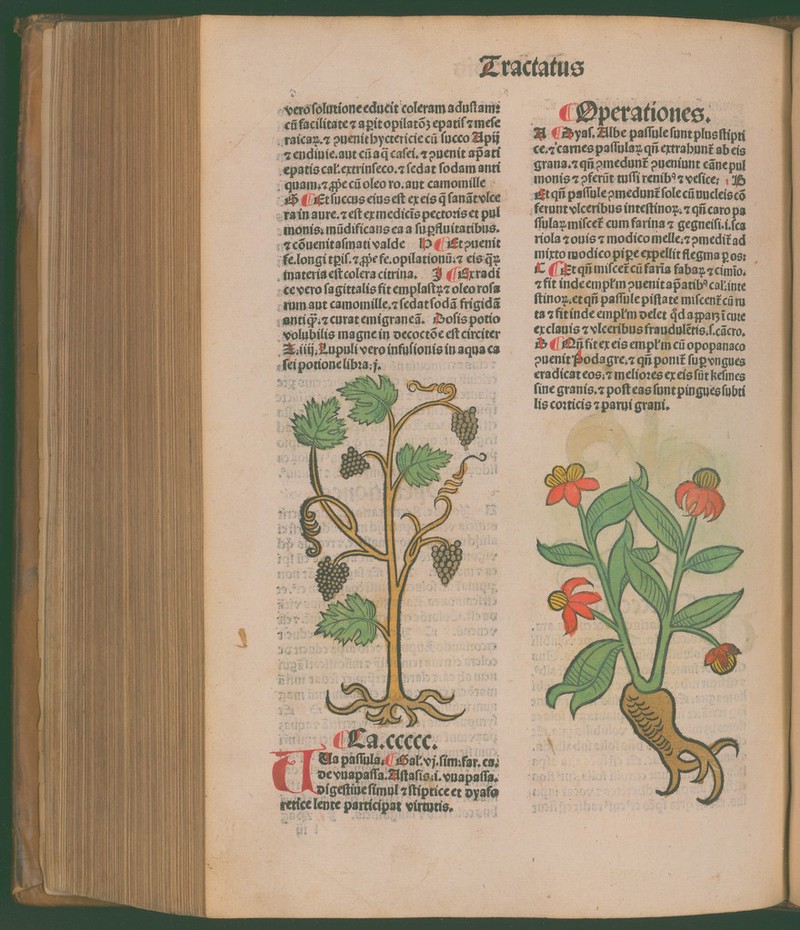 Tractatus
vero solutione educit coleram adustam:
cū facilitate ⁊ aꝑit opilatōꝫ epatis ⁊ mese
raicaꝝ. ⁊ ꝯuenit hyctericie cū succo Apij
⁊ endiuie. aut cū aq̄ casei. ⁊ ꝯuenit aꝑati
epatis cal. extrinseco. ⁊ sedat sodam anti
quam. ⁊ ꝓpe cū oleo ro. aut camomille
Et succus eius est ex eis q̄ sanāt vlce
ra in aure. ⁊ est ex medicīs pectoris et pul
monis: mūdificans ea a suꝑfluitatibus.
⁊ cōuenit asmati valde H Et ꝯuenit
fe. longi tꝑis. ⁊ ꝓpe fe. opilationū: ⁊ eis qꝝ
materia est colera citrina. I Ex radi
ce vero sagittalis fit emplastꝝ ⁊ oleo rosa
rum aut camomille. ⁊ sedat sodā frigidā
antiq̄. ⁊ curat emigraneā. Dosis potio
volubilis magne in decoctōe est circiter
Ʒ. iiij. Lupuli vero infusionis in aqua ca
sei potione libra: j.
Ca. ccccc.
Ua passula. Gal. vj. sim. far. ca.
de vua passa. Astasis. i. vua passa.
digestiue simul ⁊ stiptice et dyafo
retice lente participat virtutis.
Operationes.
A Dyas. Albe passule sunt plus stipti
ce. ⁊ carnes passulaꝝ qn̄ extrahunt ab eis
grana. ⁊ qn̄ ꝯmedunt ꝯueniunt cāne pul
monis ⁊ ꝯferūt tussi renibꝰ ⁊ vesice: B
Et qn̄ passule ꝯmedunt sole cū nucleis cō
ferunt vlceribus intestinoꝝ. ⁊ qn̄ caro pa
ssulaꝝ miscet cum farina ⁊ gegneisi. i. sca
riola ⁊ ouis ⁊ modico melle. ⁊ ꝯmedit ad
mixto modico pipe expellit flegma ꝑ os:
C Et qn̄ miscet cū farīa fabaꝝ ⁊ cimīo.
⁊ fit inde emplm ꝯuenit apatibꝰ cal. inte
stinoꝝ. et qn̄ passule pistate miscent cū ru
ta ⁊ fit inde emplm delet
ex clauis ⁊ vlceribus fraudulētis. s. cācro.
D Qn̄ fit ex eis emplm cū opopanaco
ꝯuenit Podagre. ⁊ qn̄ ponit sup vngues
eradicat eos. ⁊ meliores ex eis sūt kesmes
sine granis. ⁊ post eas sunt pingues subti
lis corticis ⁊ parui grani.